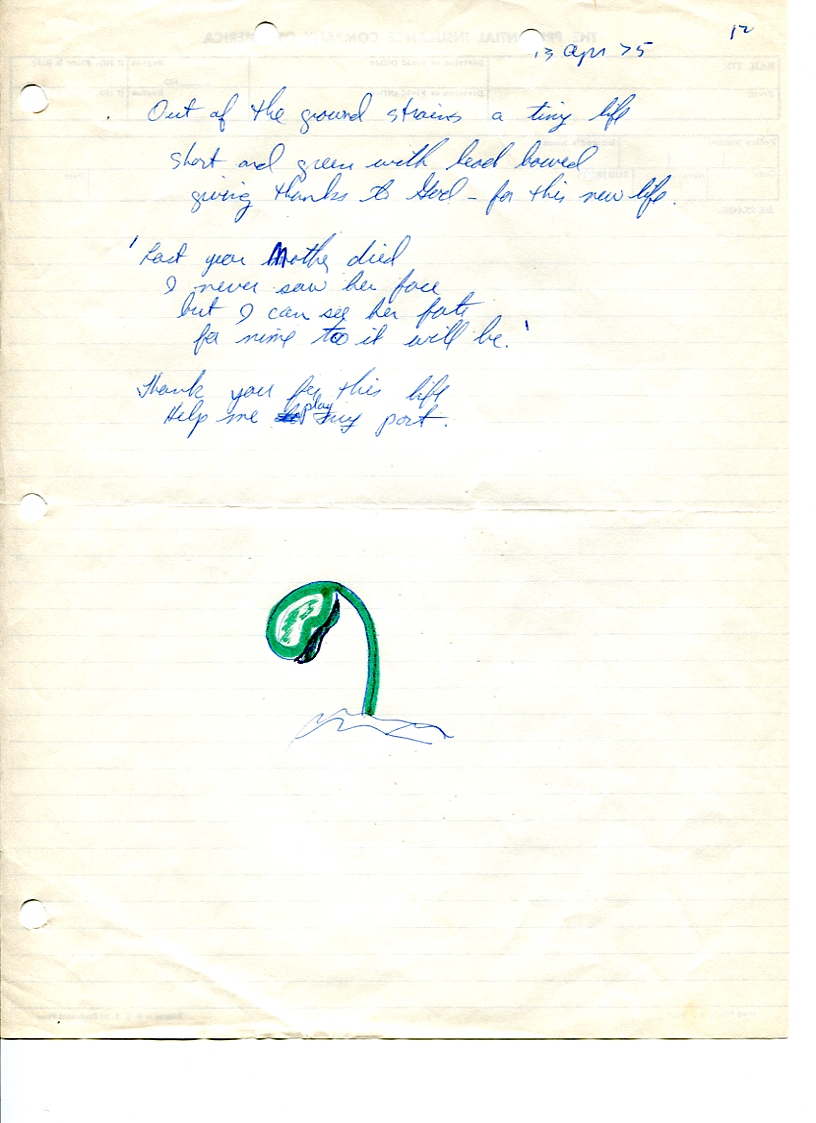 12
13 Apr 75
Out of the ground strains a tiny life
short and green with head bowed
giving thanks to God - for this new life.
'Last year Mother died
I never saw her face
but I can see her fate
for mine too it will be.'
Thank you for this life
Help me play my part.